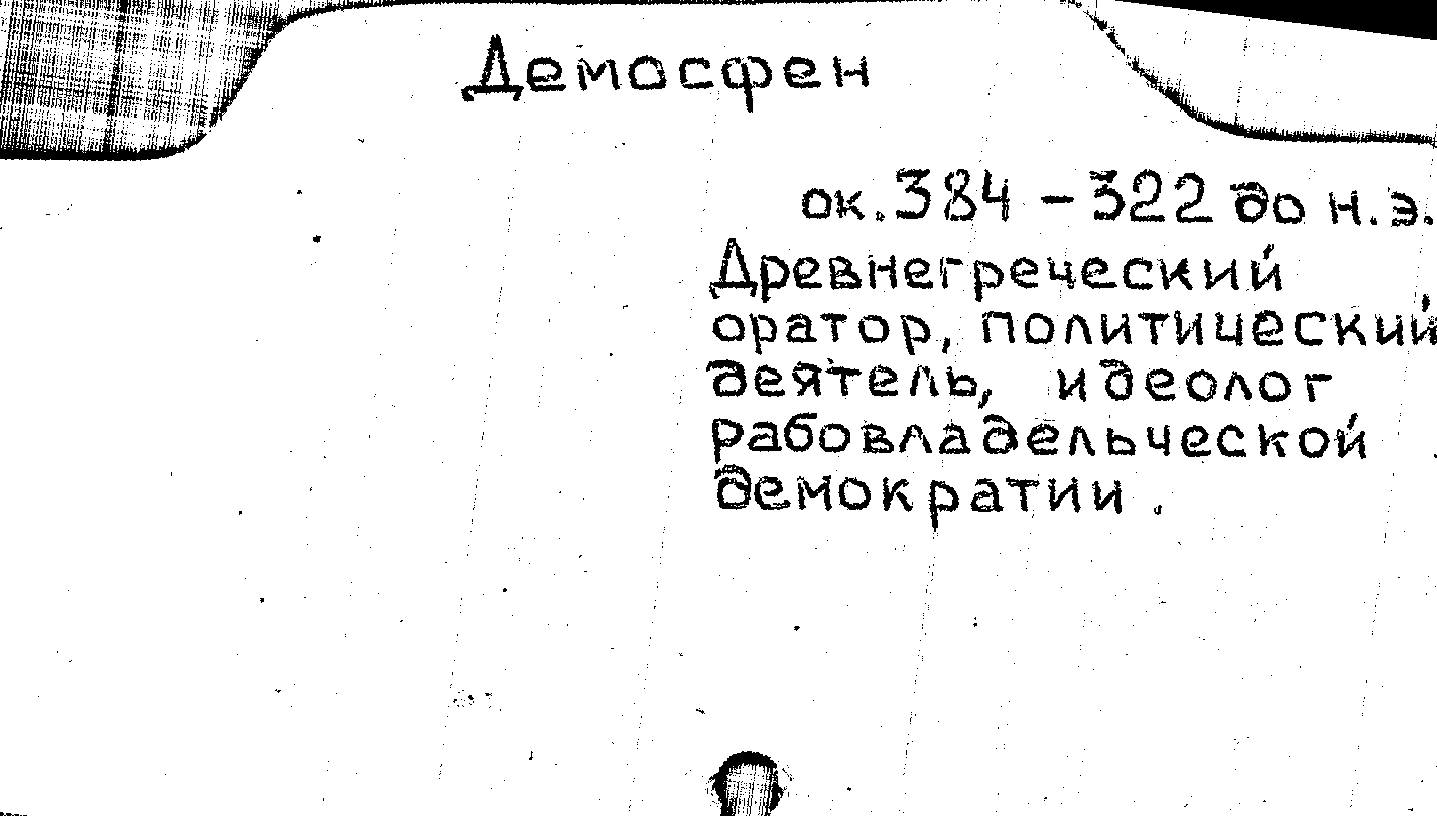 Демосфен
ок. 384 - 322 до н.э.
Древнегреческий
оратор, политический
деятель, идеолог
рабовладельческой
демократии.